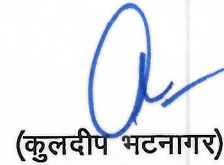 (कुलदीप भटनागर)